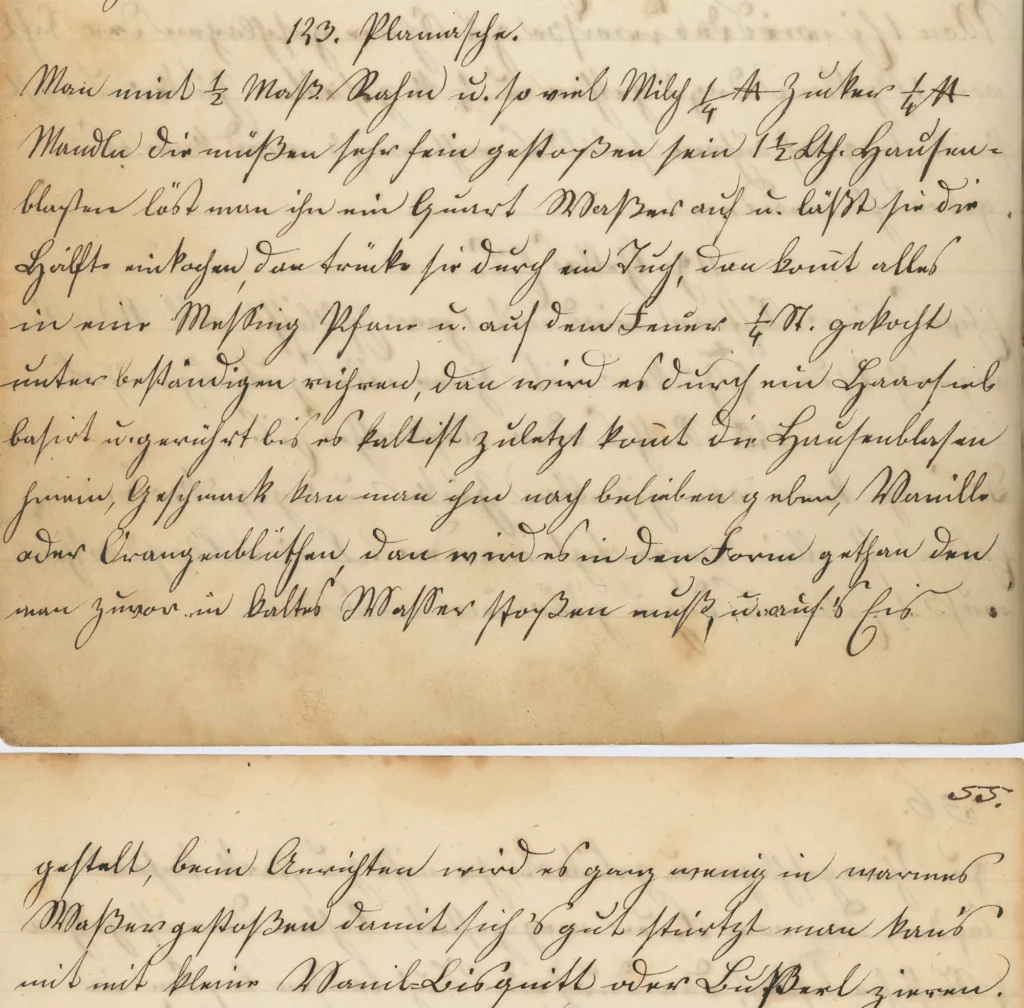 123. Plamasche.
Man nimt ½ Maß Rahm u. so viel Milch ¼ ℔ Zucker ¼ ℔
Mandln die müßen sehr fein gestoßen sein 1½ Lth. Hausen=
blasen löst man ihn ein Quart Waßer auf u. läßt sie die
Hälfte einkochen, dan trücke sie durch ein Tuch, dan kom̄t alles
in eine Messing Pfane u. auf dem Feuer ¼ St. gekocht
unter beständigen rühren, dan wird es durch ein Haarsieb
basirt u. gerührt bis es kalt ist zuletzt kom̄t die Hausenblasen
hinein, Geschmack kan man ihm nach belieben geben, Vanille
oder Orangenblüthen, dan wird es in den Form gethan den
man zuvor in kaltes Wasser stoßen muß, u. auf's Eis
55.
gestelt, beim Anrichten wird es ganz wenig in warmes
Waßer gestoßen damit sich's gut stürtzt man kan's
mit mit kleine Vanil=Bisquitt oder Bußerl zieren.